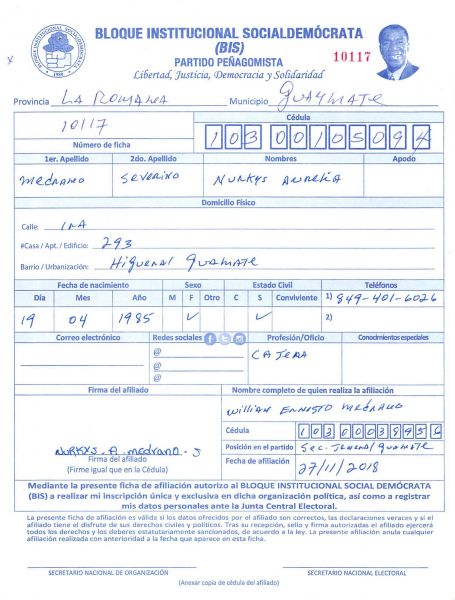 BLOQUE INSTITUCIONAL SOCIALDEMÓCRATA
(BIS)
PARTIDO PEÑAGOMISTA
Libertad, Justicia, Democracia y Solidaridad
10117
Provincia LA ROMANA Municipio GUAYMATE
10117
Número de ficha
Cédula
10300105094
1er. Apellido 2do. Apellido Nombres Apodo
medrano Severino NURKYS AURELIA
Domicilio Físico
Calle: INA
#Casa / Apt. / Edificio: 293
Barrio / Urbanización: Higueral Guamate
Fecha de nacimiento Sexo Estado Civil Teléfonos
Día Mes Año M F Otro C S Conviviente 1) 849-401-6026
19 04 1985 ✓ ✓ 2)
Correo electrónico Redes sociales Profesión/Oficio Conocimientos especiales
@ CAJERA
@
@
Firma del afiliado Nombre completo de quien realiza la afiliación
William Ernesto medrano
Cédula 10300038956
NURKYS. A. medrano. S
Firma del afiliado
(Firme igual que en la Cédula)
Posición en el partido Sec. General Guamate
Fecha de afiliación 27/11/2018
Mediante la presente ficha de afiliación autorizo al BLOQUE INSTITUCIONAL SOCIAL DEMÓCRATA
(BIS) a realizar mi inscripción única y exclusiva en dicha organización política, así como a registrar
mis datos personales ante la Junta Central Electoral.
La presente ficha de afiliación es válida si los datos ofrecidos por el afiliado son correctos, las declaraciones veraces y si el
afiliado tiene el disfrute de sus derechos civiles y políticos. Tras su recepción, sello y firma autorizadas el afiliado ejercerá
todos los derechos y los deberes estatutariamente sancionados, de acuerdo a la ley. La presente afiliación anula cualquier
afiliación realizada con anterioridad a la fecha que aparece en esta ficha.
SECRETARIO NACIONAL DE ORGANIZACIÓN SECRETARIO NACIONAL ELECTORAL
(Anexar copia de cédula del afiliado)